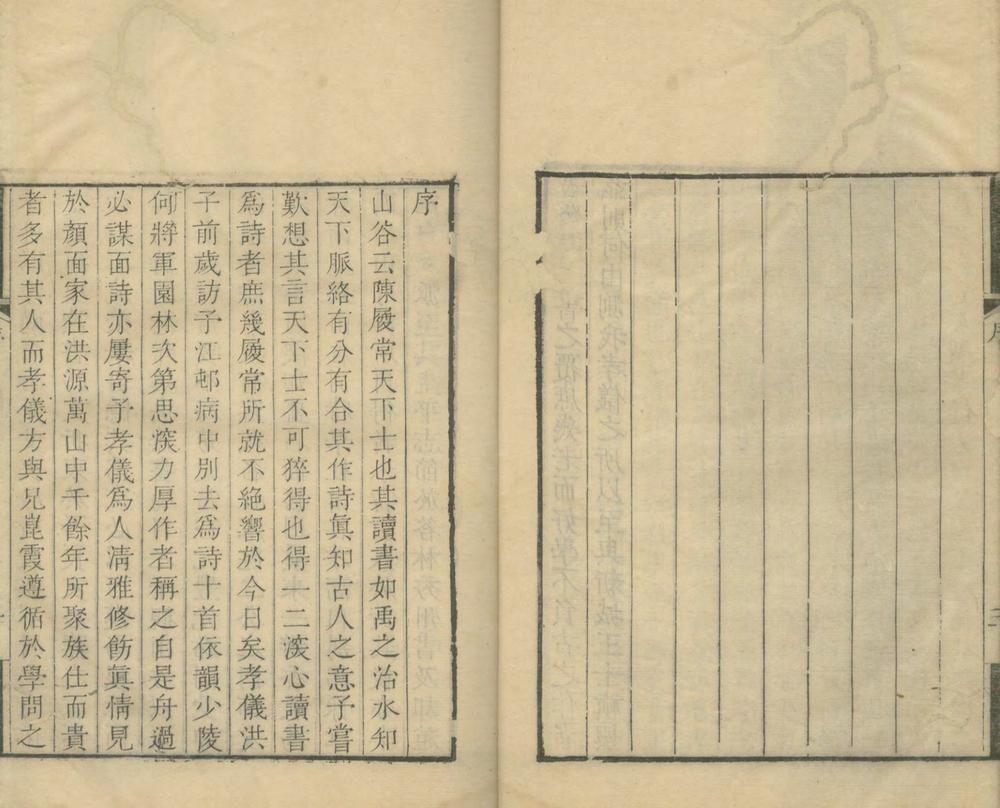 序
山谷云陳履常天下士也其讀書如禹之治水知
天下脈絡有分有合其作詩眞知古人之意子嘗
歎想其言天下士不可猝得也得一二湥心讀書
爲詩者庶幾履常所就不絕響於今日矣孝儀洪
子前歲訪子江邨病中別去爲詩十首依韻少陵
何將軍園林次第思湥力厚作者稱之自是舟過
必謀面詩亦屢寄子孝儀爲人淸雅修飭眞情見
於顏面家在洪源萬山中千餘年所聚族仕而貴
者多有其人而孝儀方與兄崑霞遵循於學問之
序
二